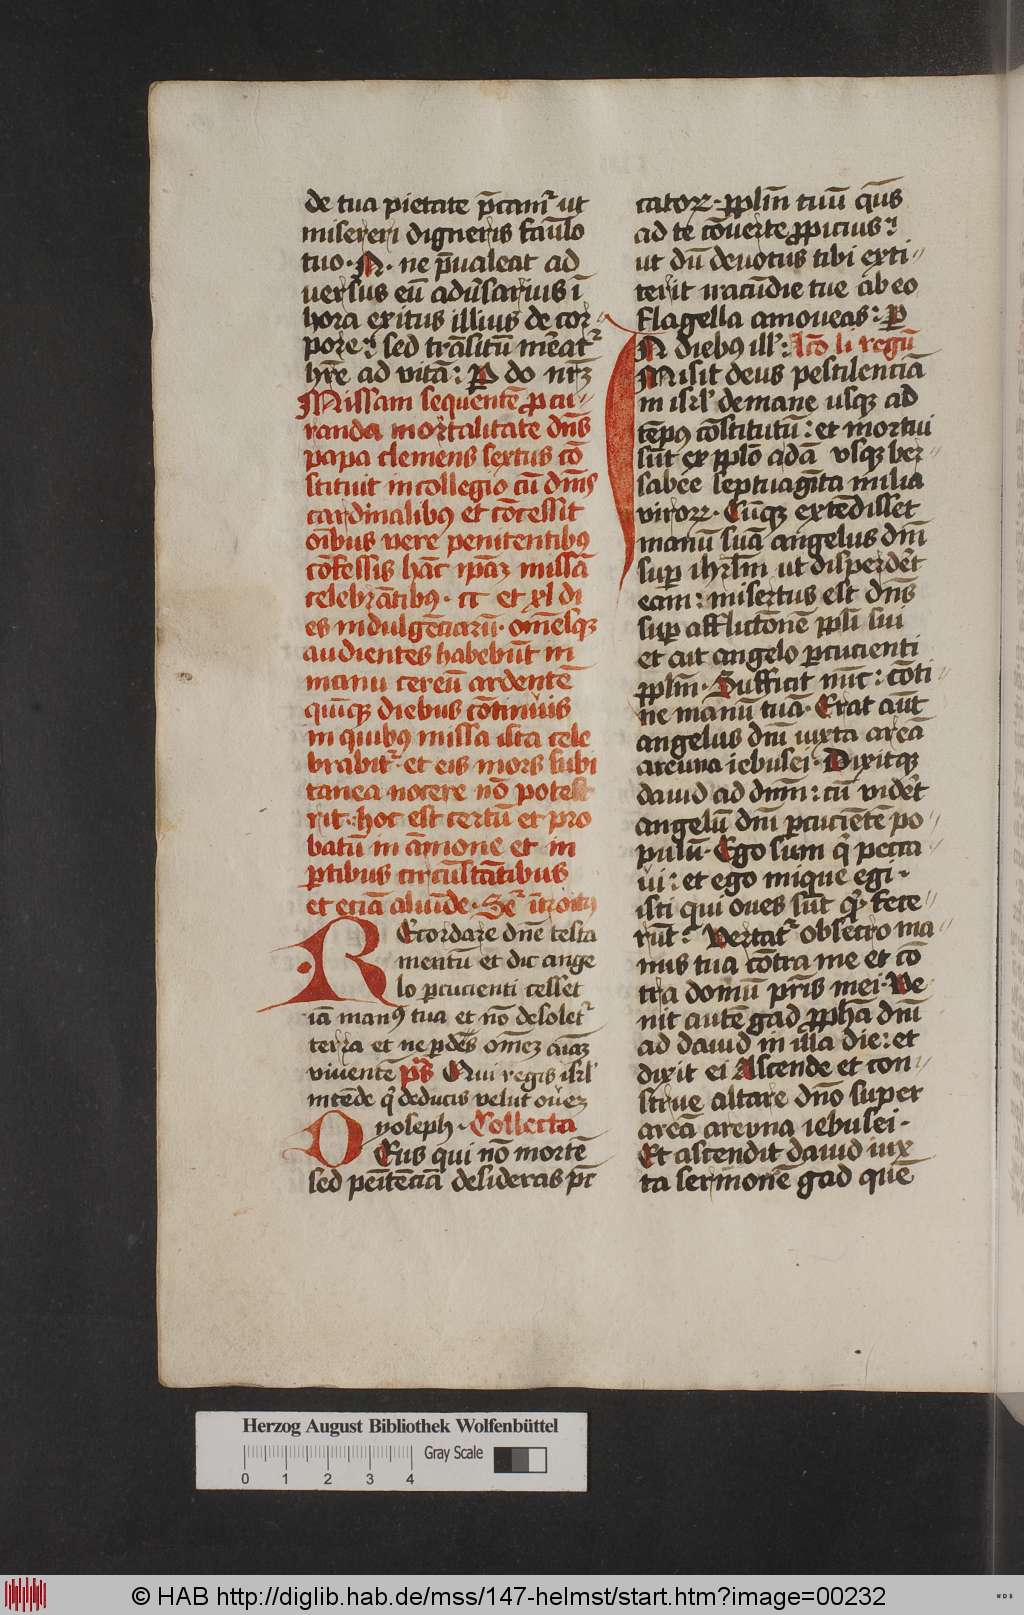 de tua pietate p̄camꝰ ut
misereri digneris fam̄lo
tuo · N · ne p̄ualeat ad
uersus eū adūsarius ī
hora exitus illius de cor
pore : sed trāsitū mēat᷑
hr̄e ad vitā : P do nr̄ꝫ
Missam sequentē ꝓ cu
randa mortalitate dn̄s
papa clemens sextus cō
stituit in collegio cū dn̄is
cardinalibꝰ et cōcessit
oībus vere penitentibꝰ
cōfessis hāc ip̄aꝫ missā
celebrātibꝰ · cc et xl di
es indulgēciarū · omēsqꝫ
audientes habebūt in
manu cereū ardentē
quīqꝫ diebus cōtinuis
in quibꝰ missa ista cele
brabit᷑ · et eis mors subi
tanea nocere nō potest
rit · hoc est certū et pro
batū in āinione et in
ꝑtibus circūstātibus
et eciā aliūde · Se᷑ ītroitꝰ
REcordare dn̄e testa
mentū et dic ange
lo ꝑcucienti cesset
iā manꝰ tua et nō desolet᷑
terra et ne ꝑdes om̄eꝫ aīaꝫ
viuentē p̄s Qui regis isrl̄
intēde q̄ deducis velut oueꝫ
yoseph · Collecta
DEus qui nō mortē
sed penītēciā desideras pc̄
catoꝝ · pplm̄ tuū qūs
ad te cōuerte ꝓpicius :
ut dū deuotus tibi exti
terit iracūdie tue ab eo
flagella amoueas : P
IN diebꝰ ill : Lc̄o li regū
Misit deus pestilenciā
in isrl̄ de mane usqꝫ ad
tēpꝰ cōstitutū : et mortui
sūt ex pplo a dā vsqꝫ ber
sabee septuagīta milia
viroꝝ · Cūqꝫ extēdisset
manū suā angelus dn̄i
suꝑ ihrlm̄ ut disperdēt
eam : misertus est dn̄s
suꝑ afflictōnē ppl̄i sui
et ait angelo ꝑcucienti
pplm̄ · Sufficit nūc : cōti
ne manū tuā · Erat aūt
angelus dn̄i iuxta areā
areuna iebusei · Dixitqꝫ
dauid ad dn̄m : cū vidēt
angelū dn̄i ꝑcuciētē po
pulū · Ego sum q̄ pecca
ui : et ego inique egi ·
isti qui oues sūt q̄ fece
rūt : Vertat᷑ obsecro ma
nus tua cōtra me et cō
tra domū pr̄is mei · Ve
nit autē gad ꝓpha dn̄i
ad dauid in illa die : et
dixit ei Ascende et con
strue altare dn̄o super
areā areuna iebusei ·
Et ascendit dauid iux
ta sermonē gad quē
Herzog August Bibliothek Wolfenbüttel
Gray Scale
0 1 2 3 4
© HAB http://diglib.hab.de/mss/147-helmst/start.htm?image=00232